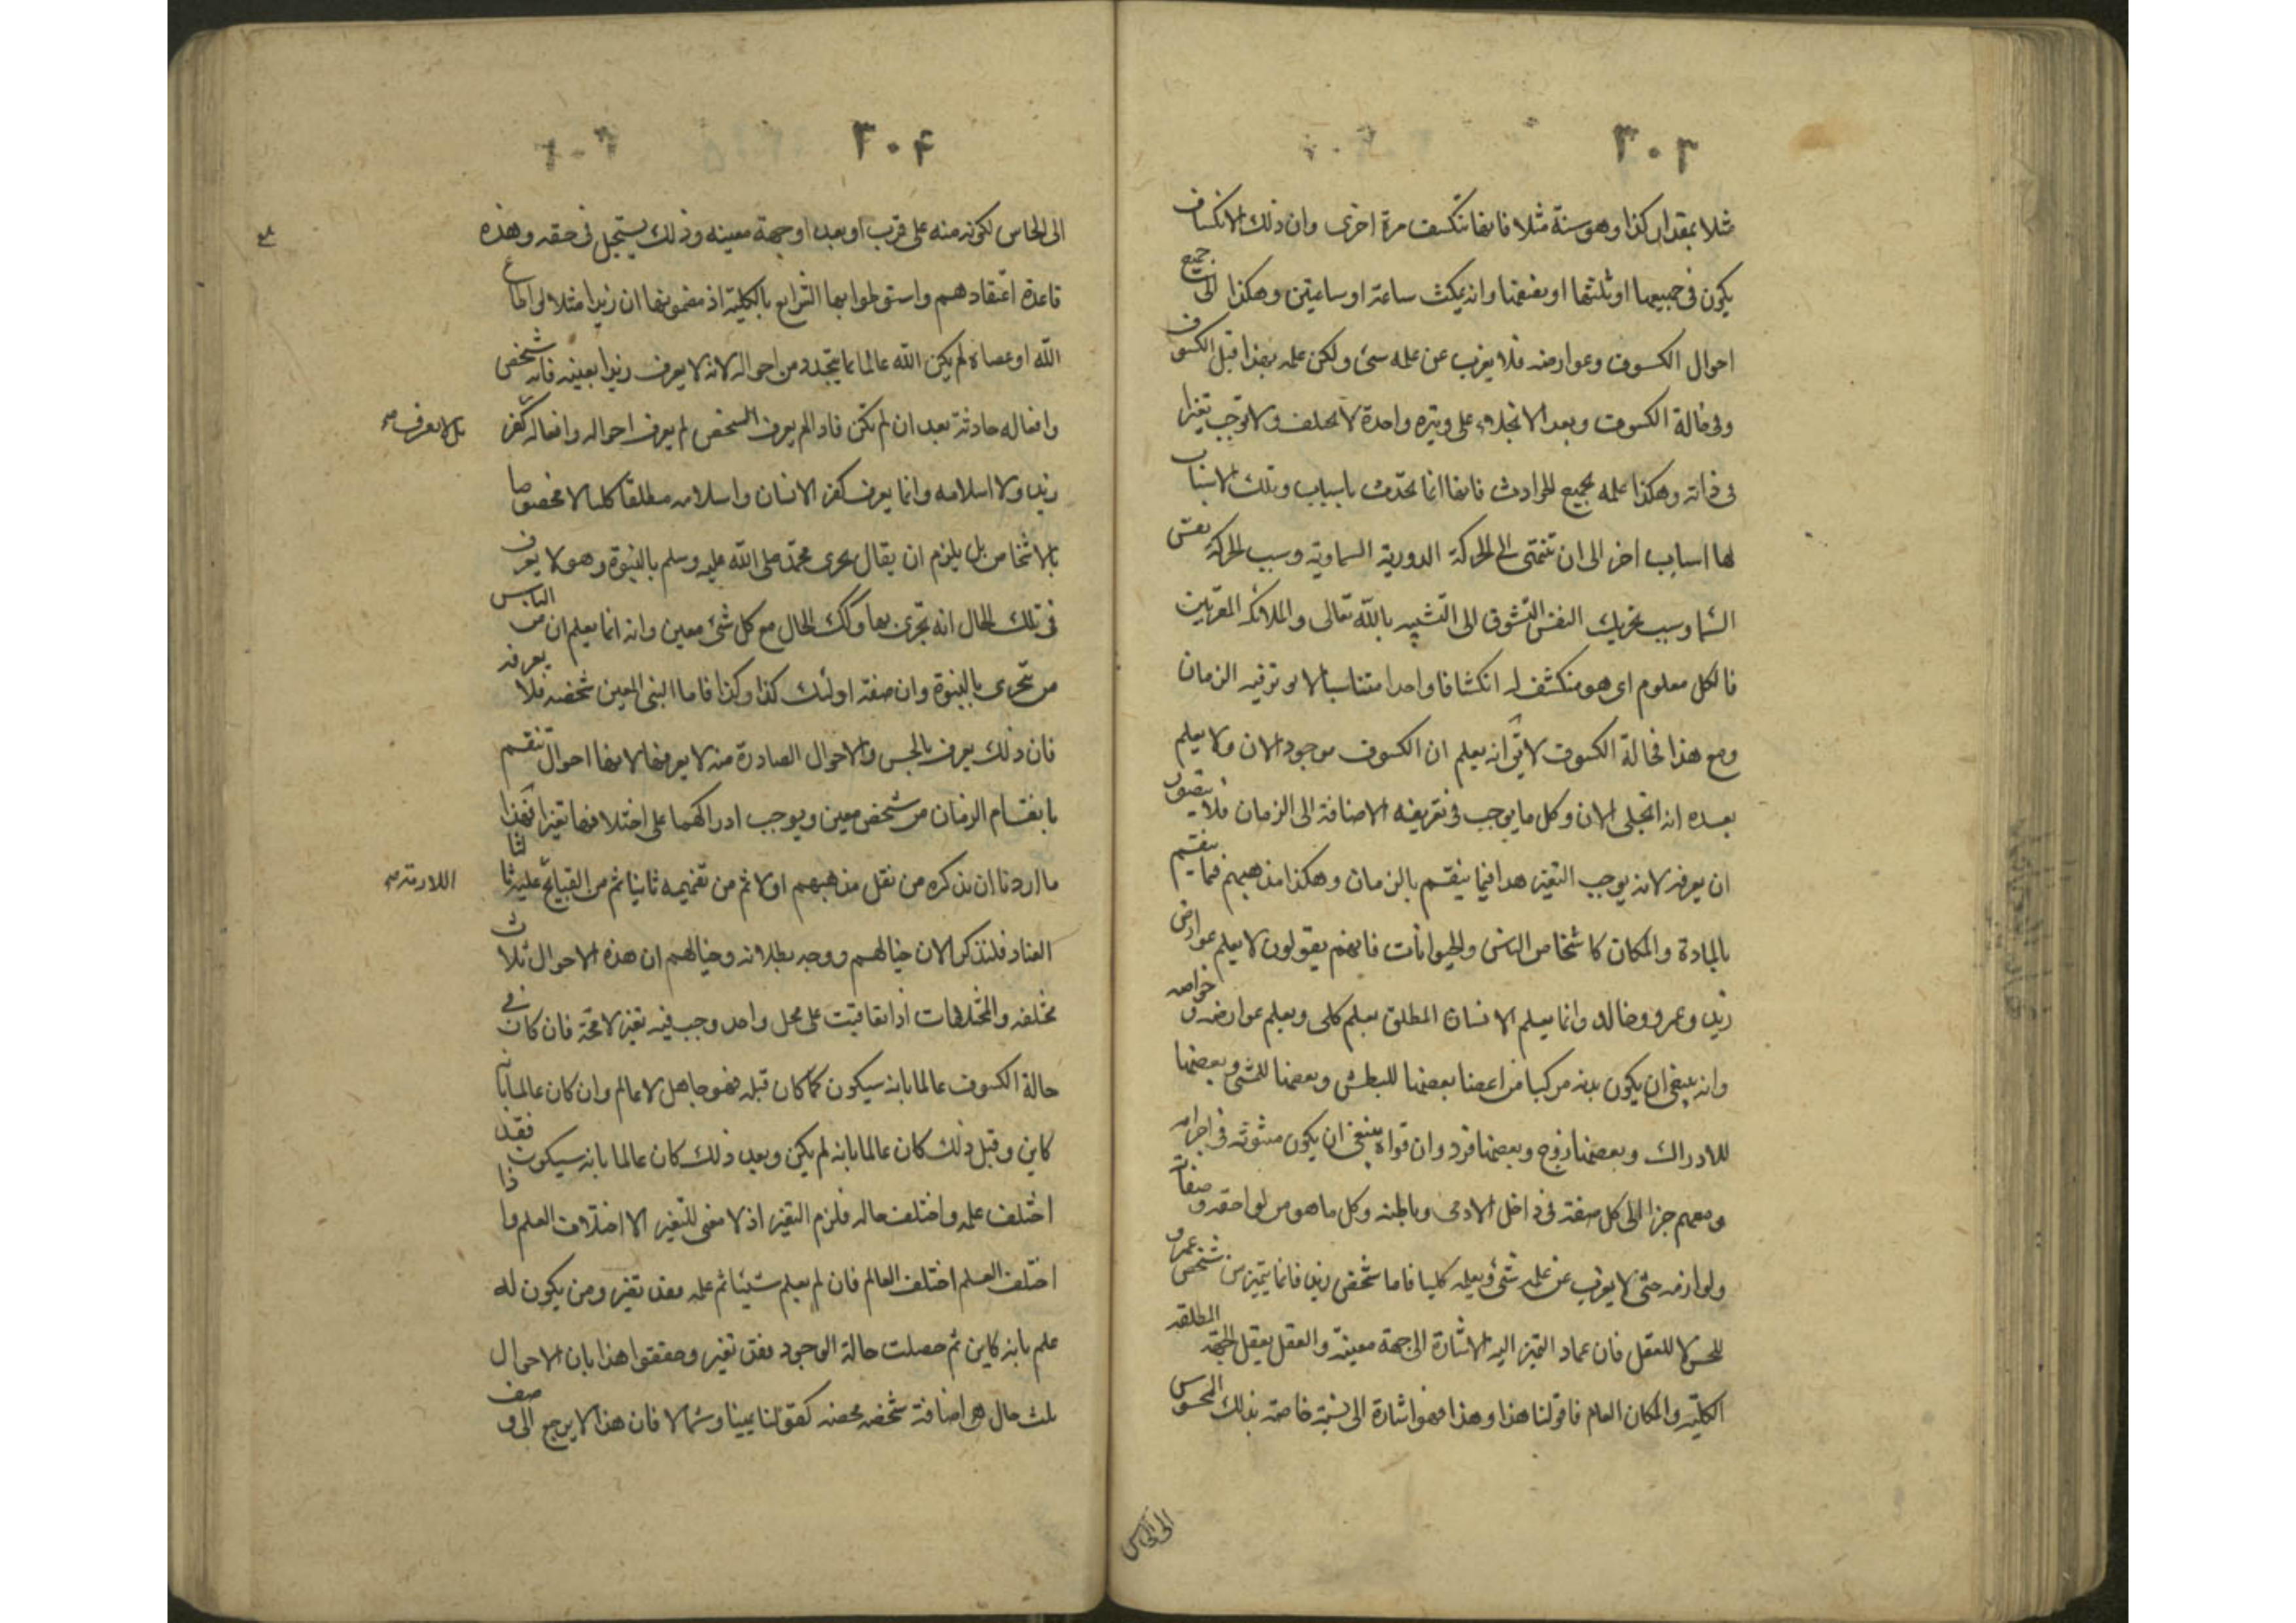 ٣٠٣
مثلا بمقدار كذا وهو سنة مثلا فانها تنكسف مرة اخرى وان ذلك الانكساف
يكون فى جميعها او ثلثها او نصفها وانه يمكث ساعة او ساعتين وهكذا الى جميع
احوال الكسوف وعوارضه فلا يعزب عن علمه شئ ولكن علمه بهذا قبل الكسوف
وفى حالة الكسوف وبعد الانجلاء على وتيره واحدة لا يختلف ولا توجب تغيرا
فى ذاته وهكذا علمه بجميع الحوادث فانها انما تحدث باسباب وتلك الاسباب
لها اسباب اخر الى ان تنتهى الى الحركة الدورية السماوية وسبب الحركة نفس
السما وسبب تحريك النفس التشوق الى التشبه بالله تعالى والملائكه المقربين
فالكل معلوم اى هو منكشف له انكشافا واحدا متناسبا لا يوثر فيه الزمان
ومع هذا فحالة الكسوف لا يق انه يعلم ان الكسوف موجود الان ولا يعلم
بعده انه انجلى الان وكل ما يوجب فى تعريفه الاضافة الى الزمان فلا يتصور
ان يعرفه لانه يوجب التغير هذا فيما ينقسم بالزمان وهكذا مذهبهم فيما ينقسم
بالمادة والمكان كاشخاص الناس والحيوانات فانهم يقولون لا يعلم عوارض
زيد وعمرو وخالد وانما يعلم الانسان المطلق بعلم كلى ويعلم عوارضه وخواصه
وانه ينبغى ان يكون بدنه مركبا من اعضا بعضها للبطش وبعضها للمشى وبعضها
للادراك وبعضها زوج وبعضها فرد وان قواه ينبغى ان يكون مبثوثه فى اجزائه
وهلم جرا الى كل صفة فى داخل الادمى وباطنه وكل ما هو من لواحقه وصفاته
ولوازمه حتى لا يعزب عن علمه شئ ويعلمه كليا فاما شخص زيد فانما يتميز من شخص عمرو
للحس لا للعقل فان عماد التميز اليه الاشارة الى جهة معينة والعقل يعقل الجهة المطلقه
الكلية والمكان العام فاما قولنا هذا وهذا فهو اشارة الى نسبة خاصة بذلك المحسوس
الى الحاس
٣٠۴
الى الحاس لكونه منه على قرب او بعد او جهة معينه وذلك يستحيل فى حقه وهذه
قاعدة اعتقادهم واستوطوا بها الشرايع بالكلية اذ مضمونها ان زيدا مثلا لو اطاع
الله او عصاه لم يكن الله عالما بما يتجدد من احواله لانه لا يعرف زيدا بعينه فانه شخص
وافعاله حادثة بعد ان لم تكن فاذا لم يعرف الشخص لم يعرف احواله وافعاله كفر
بل لا يعرف صح
زيد ولا اسلامه وانما يعرف كفر الانسان واسلامه مطلقا كليا لا مخصوصا
بالاشخاص بل يلزم ان يقال تحرى محمد صلى الله عليه وسلم بالنبوة وهو لا يعرف
فى تلك الحال انه تحرى بها وكك الحال مع كل شئ معين وانه انما يعلم ان من الناس
من تحرى بالنبوة وان صفة اولئك كذا وكذا فاما النبى المعين شخصه فلا يعرفه
فان ذلك يعرف بالحس والاحوال الصادرة منه لا يعرفها لانها احوال تنقسم
بانقسام الزمان من شخص معين ويوجب ادراكهما على اختلافها تغيرا فهذا
ما اردنا ان نذكره من نقل مذهبهم اولا ثم من تفهيمه ثانيا ثم من القبايح عليه ثالثا
اللازمة صح
العناد فلنذكر الان خيالهم ووجه بطلانه وخيالهم ان هذه الاحوال ثلاث
مختلفه والمختلفات اذا تعاقبت على محل واحد وجب فيه تغير لا محة فان كان فى
حالة الكسوف عالما بانه سيكون كما كان قبله فهو جاهل لا عالم وان كان عالما بانه
كاين وقبل ذلك كان عالما بانه لم يكن وبعد ذلك كان عالما بانه سيكون فقد
اختلف علمه واختلف حاله فلزم التغير اذ لا معنى للتغير الا اختلاف العلم واذا
اختلف العلم اختلف العالم فان لم يعلم شيئا ثم علمه فقد تغير ومن يكون له
علم بانه كاين ثم حصلت حالة الوجود فقد تغير وحققوا هذا بان الاحوال
ثلث حال هى اضافة شخصه محضه كقولنا يمينا وشمالا فان هذا لا يرجع الى وصف